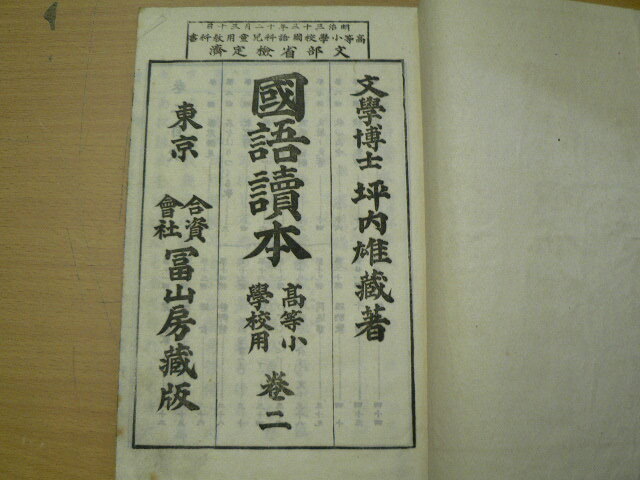 明治三十三年十二月三十日
高等小學校國語科兒童用敎科書
文部省檢定濟
文學博士 坪內雄藏著
國語讀本
高等小
學校用
卷二
東京
合資
會社
冨山房藏版